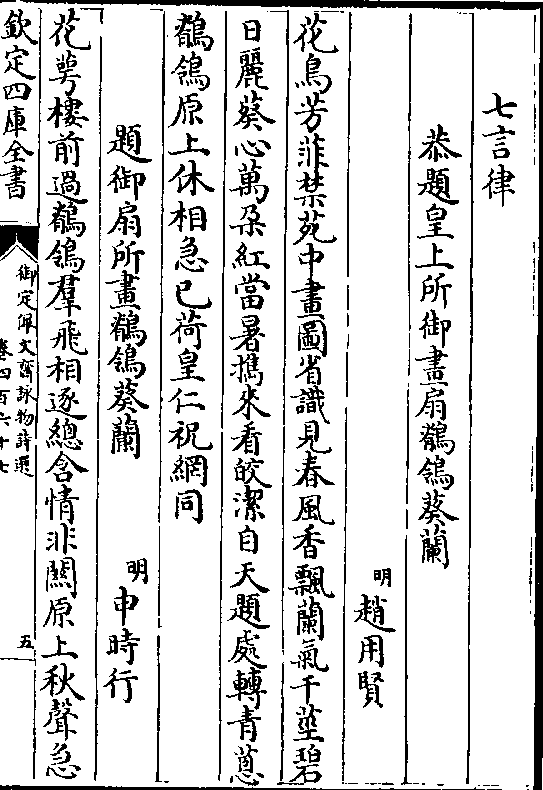 七言律
恭題皇上所御畫扇鶺鴒葵蘭
明趙用賢
花鳥芳菲禁苑中畫圖省識見春風香飄蘭氣千莖碧
日麗葵心萬朶紅當暑攜來看皎潔自天題處轉青蔥
鶺鴒原上休相急已荷皇仁祝網同
題御扇所畫鶺鴒葵蘭
明申時行
花萼樓前過鶺鴒羣飛相逐總含情非關原上秋聲急
欽定四庫全書
御定佩文齋詠物詩選
卷四百六十七
五